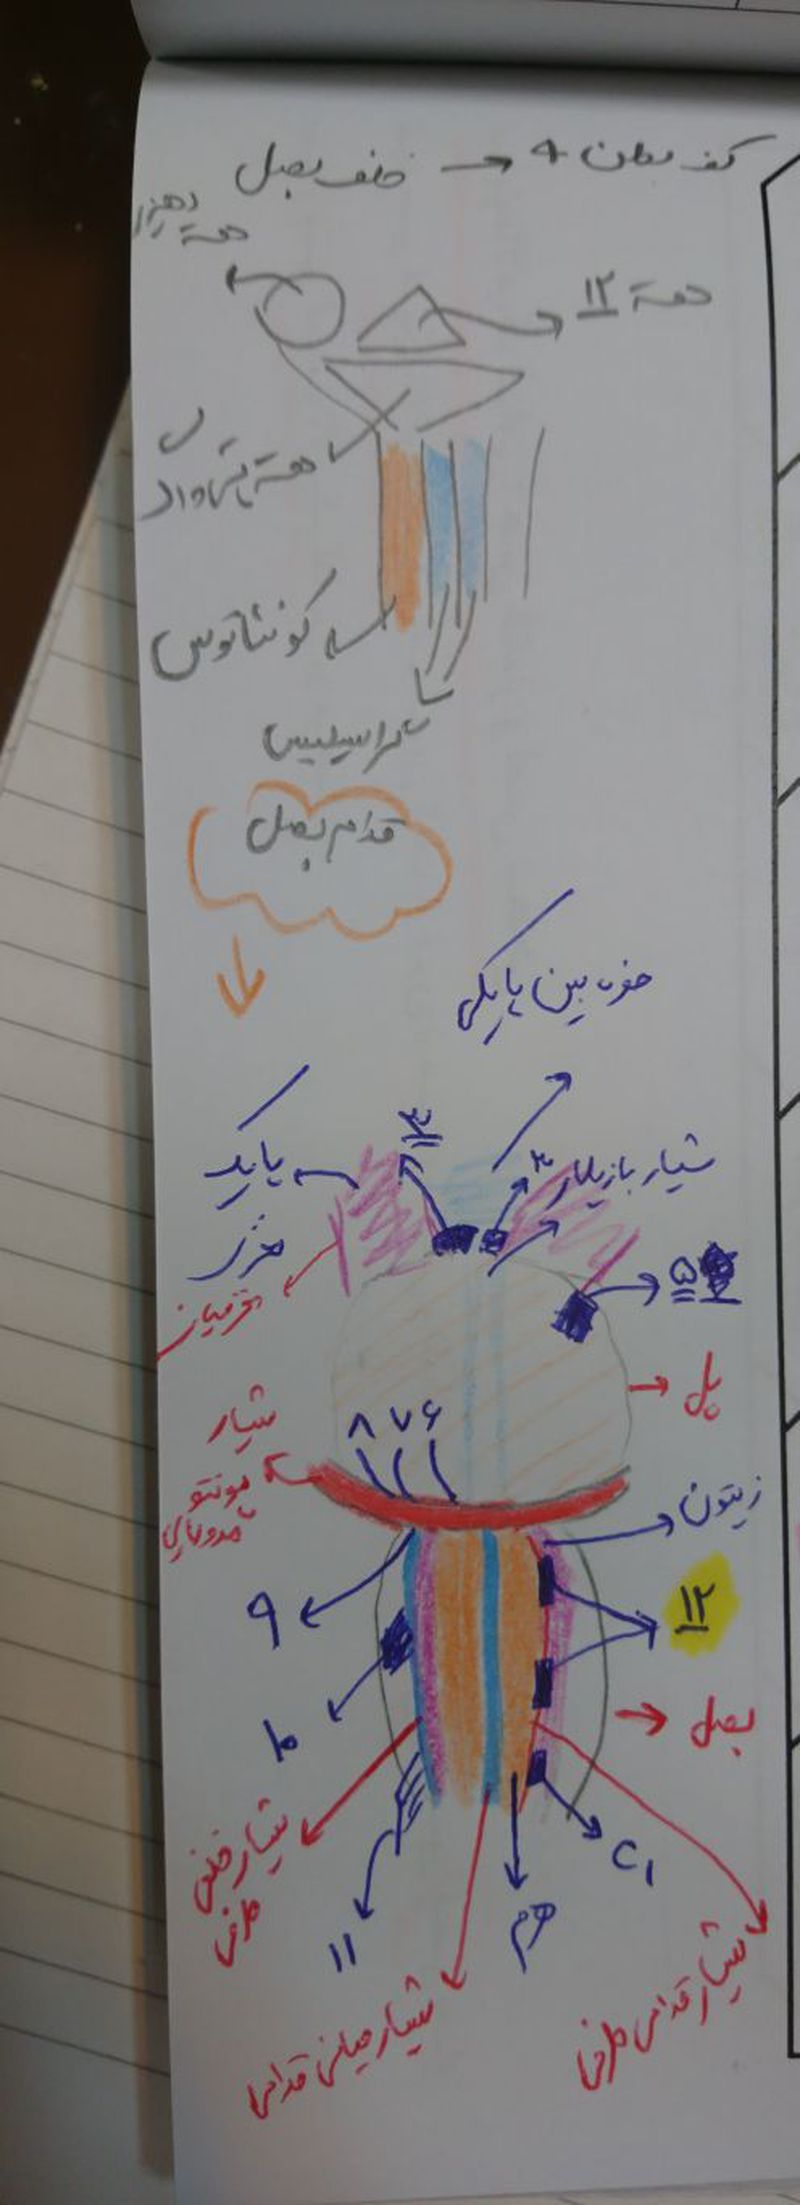 کف بطن ۴ → خلف بصل
دهلیزی
دستهٔ
دستهٔ ۱۲
دستهٔ پنتاوال
کونئاتوس
گراسیلیس
قدام بصل
حفره بین پایکی
۳
پایک
مغز
شیار بازیلار
۳
۵
پل
شیار
پونتو
مدولاری
۸ ۷ ۶
زیتون
۹
۱۲
۱۰
بصل
شیار خلفی
طرفی
C1
۱۱
هرم
شیار میانی قدامی
شیار قدامی طرفی